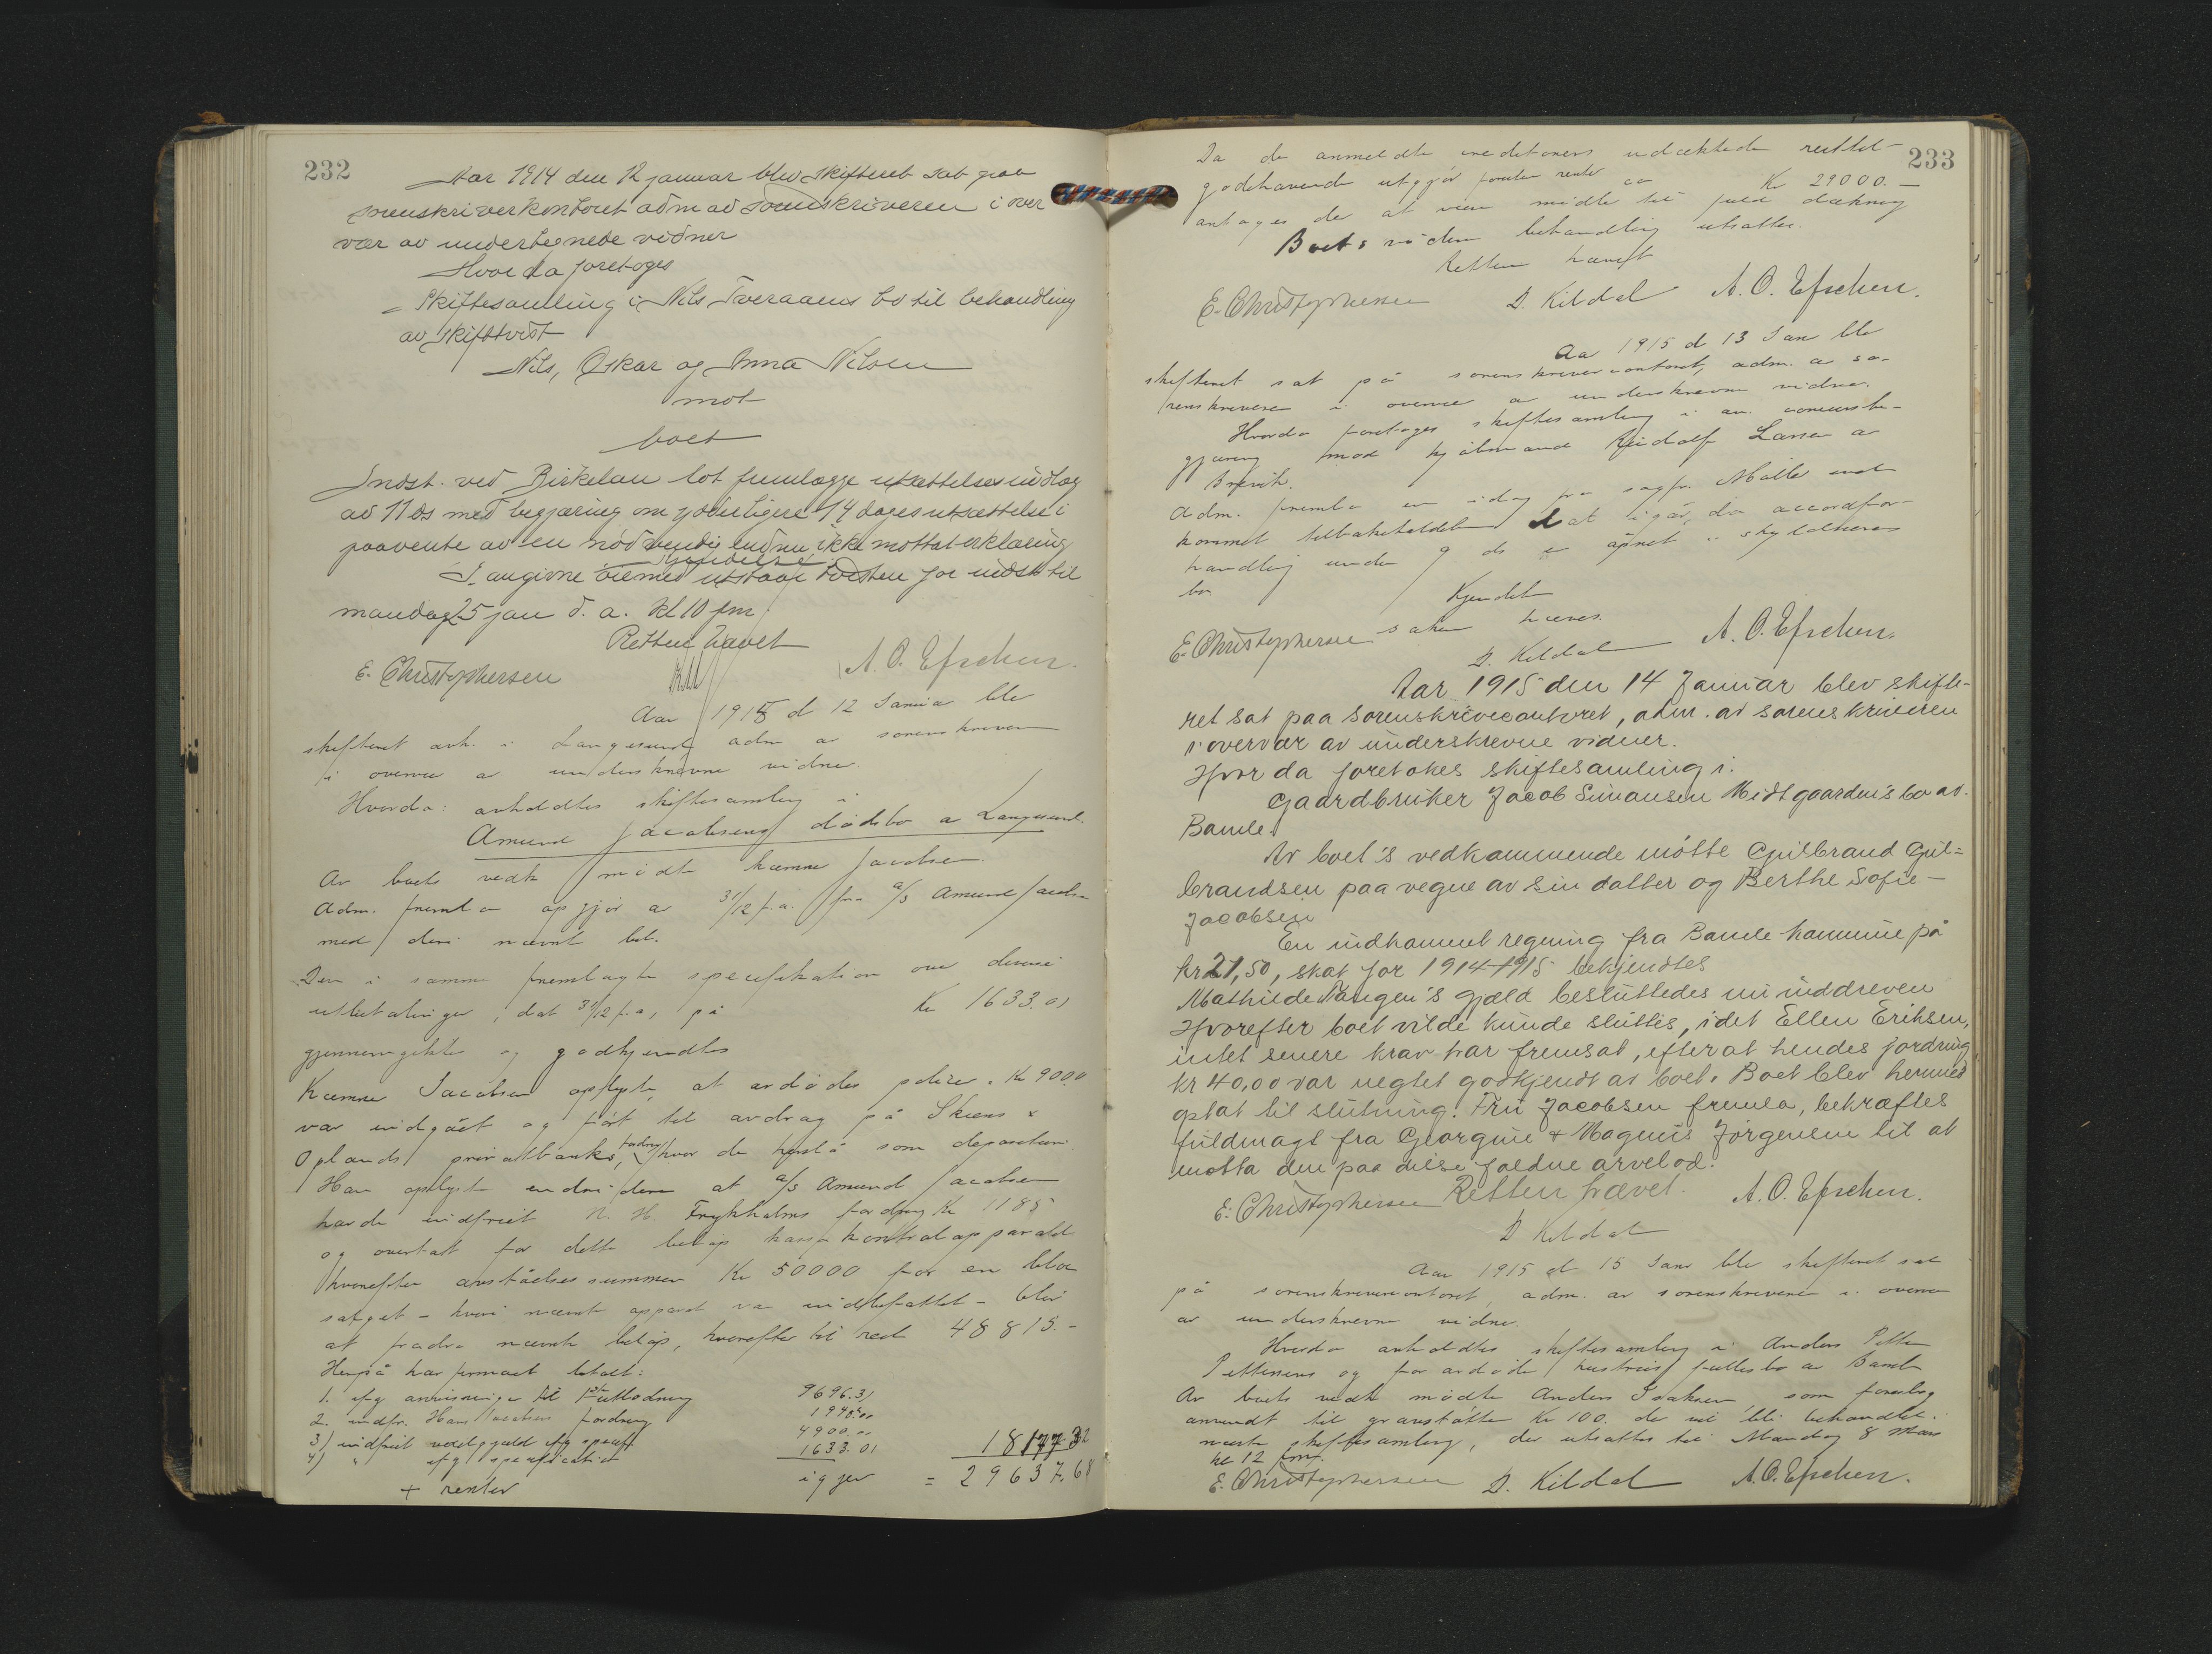 232
Aar 1914 den 12 januar blev skifteret sat paa
sorenskriverkontoret adm av sorenskriveren i over
vær av undertegnede vidner
Hvor da foretoges
Skiftesamling i Nils Tveraaens bo til behandling
av skiftetvist
Nils, Oskar og Anna Nilsen
mot
boet
Indst. ved Birkeland lot fremlægge utsættelsesindlæg
av 11 ds med begjæring om yderligere 14 dages utsættelse i
paavente av en nødvendig endnu ikke mottat erklæring
I angivne øiemed utstaar tvisten for indst til
mandag 25 jan d. a. kl 10 fm
Retten hævet
E. Christophersen A. O. Efschen.
Aar 1915 d 12 Januar blev
skifteret avh. i Langesund adm av sorenskriveren
i overvær av underskrevne vidner.
Hvorda: avholdtes skiftesamling i
Amund Jacobsens dødsbo av Langesund.
Av boets vedk mødte Jacobsen.
Adm. fremla opgjør av 31/12 f.a. fra a/s Amund Jacobsen
med deri nævnte bil.
Den i samme fremlagte specifikation over diverse
utbetalinger, dat 31/12 f.a, på Kr 1633.01
gjennemgikkes og godkjendtes
Jacobsen oplyste, at avdødes polise Kr 9000
var indgået og ført til avdrag på Skiens &
Oplands privatbanks fordring, hvor de henstå som depositum
Han oplyste endvidere at a/s Amund Jacobsen
havde indfriet N. H. Frykholms fordring Kr 1185
og overtat for dette beløp kassakontrolapparatet
hvorefter avståelsessummen Kr 50000 for en bloc
salget – hvori nævnte apparat var indbefattet – blev
at fradra nævnte beløp, hvorefter til rest 48815.-
Herpå har firmaet betalt:
1. ifg anvisninger til 1ste utlodning 9696.31
2. indfr. Hans Jacobsens fordring 1940.00
3) indfriet vexelgjæld ifg specif. 4900.00
4) " ifg specifikation 1633.01 18177.32
+ renter igjen = 29637.68
233
Da de anmeldte creditorers udækkede
godehavende utgjør foruten renter ca Kr 29000.–
antages der at være midler til fuld dækning
Boets videre behandling utsattes.
Retten hævet
E. Christophersen D. Kildal A. O. Efschen.
Aar 1915 d 13 Jan blev
skifteret sat på sorenskrivercontoret, adm. av so-
renskriveren i overvær av underskrevne vidner.
Hvorda foretoges skiftesamling i an. concursbe-
gjæring mod kjøbmand Rudolf Larsen av
Brevik.
Adm. fremla en idag fra sagfr. Møller ind-
kommet tilbakekaldelse dat igår, da accordfor-
handling under 9 ds er åpnet i skyldnerens
bo.
Kjendelse
Saken hæves.
E. Christophersen D. Kildal A. O. Efschen.
Aar 1915 den 14 Januar blev skifte-
ret sat paa sorenskrivercontoret, adm. av sorenskriveren
i overvær av underskrevne vidner.
Hvor da foretokes skiftesamling i.
Gaardbruker Jacob Simonsen Midtgaarden's bo av.
Bamle.
Av boet's vedkommende møtte Gulbrand Gul-
brandsen paa vegne av sin datter og Berthe Sofie
Jacobsen
En indkommet regning fra Bamle kommune på
kr 21,50, skat for 1914-1915 bekjendtes
Mathilde Tangen's gjæld besluttedes nu inddreven
Hvorefter boet vilde kunde sluttes, idet Ellen Eriksen,
intet senere krav har fremsat, efterat hendes fordring
kr 40,00 var negtet godkjendt av boet. Boet blev hermed
optat til slutning. Fru Jacobsen fremla, bekræftes
fuldmagt fra Georgine & Magnus Jørgensen til at
motta den paa disse faldne arvelod.
Retten hævet.
E. Christophersen D Kildal A. O. Efschen.
Aar 1915 d 15 Janr blev skifteret sat
på sorenskrivercontoret, adm. av sorenskriveren i overvær
av underskrevne vidner.
Hvorda avholdtes skiftesamling i Anders Petter
Pettersens og før avdøde hustrus fællesbo av Bamle
Av boets vedk mødte Anders Isaksen som foreslog
anvendt til gravstøtte Kr 100. der vil bli behandlet.
næste skiftesamling, der utsattes til Mandag 8 Mars
kl 12 fmg.
E. Christophersen D. Kildal A. O. Efschen.